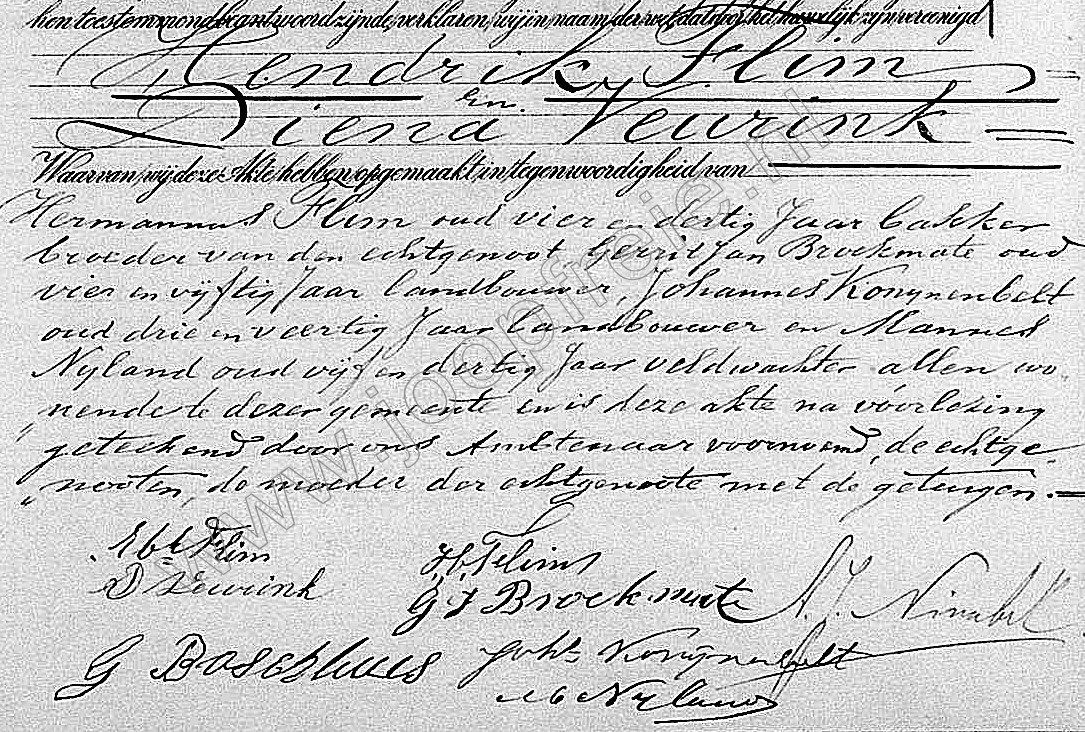 hen toestemmend beantwoord zijnde, verklaren wij in naam der wet dat door het huwelijk zijn vereenigd
Hendrik Flim
en
Diena Veurink
Waarvan wij deze Akte hebben opgemaakt in tegenwoordigheid van
Hermannus Flim oud vier en dertig Jaar bakker
broeder van den echtgenoot, Gerrit Jan Broekmate oud
vier en vijftig Jaar landbouwer, Johannes Konynenbelt
oud drie en veertig Jaar landbouwer en Mannes
Nyland oud vijf en dertig Jaar veldwachter allen wo-
nende te dezer gemeente en is deze akte na voorlezing
geteekend door ons Ambtenaar voornoemd, de echtge-
"nooten, de moeder der echtgenoote met de getuigen.
Flim H Flim
D Veurink G J Broekmate A. J.
G Boschhuis Johs Konynenbelt
M Nyland
www.joopfreije.nl